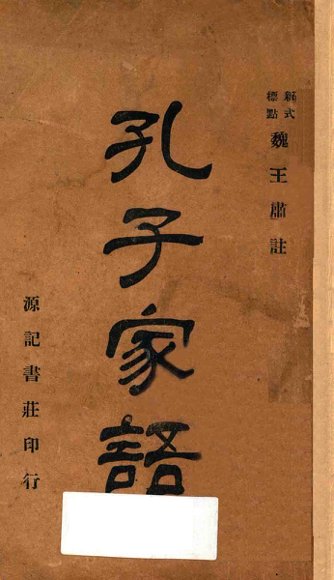 新式
標點
魏王肅註
孔子家語
源記書莊印行